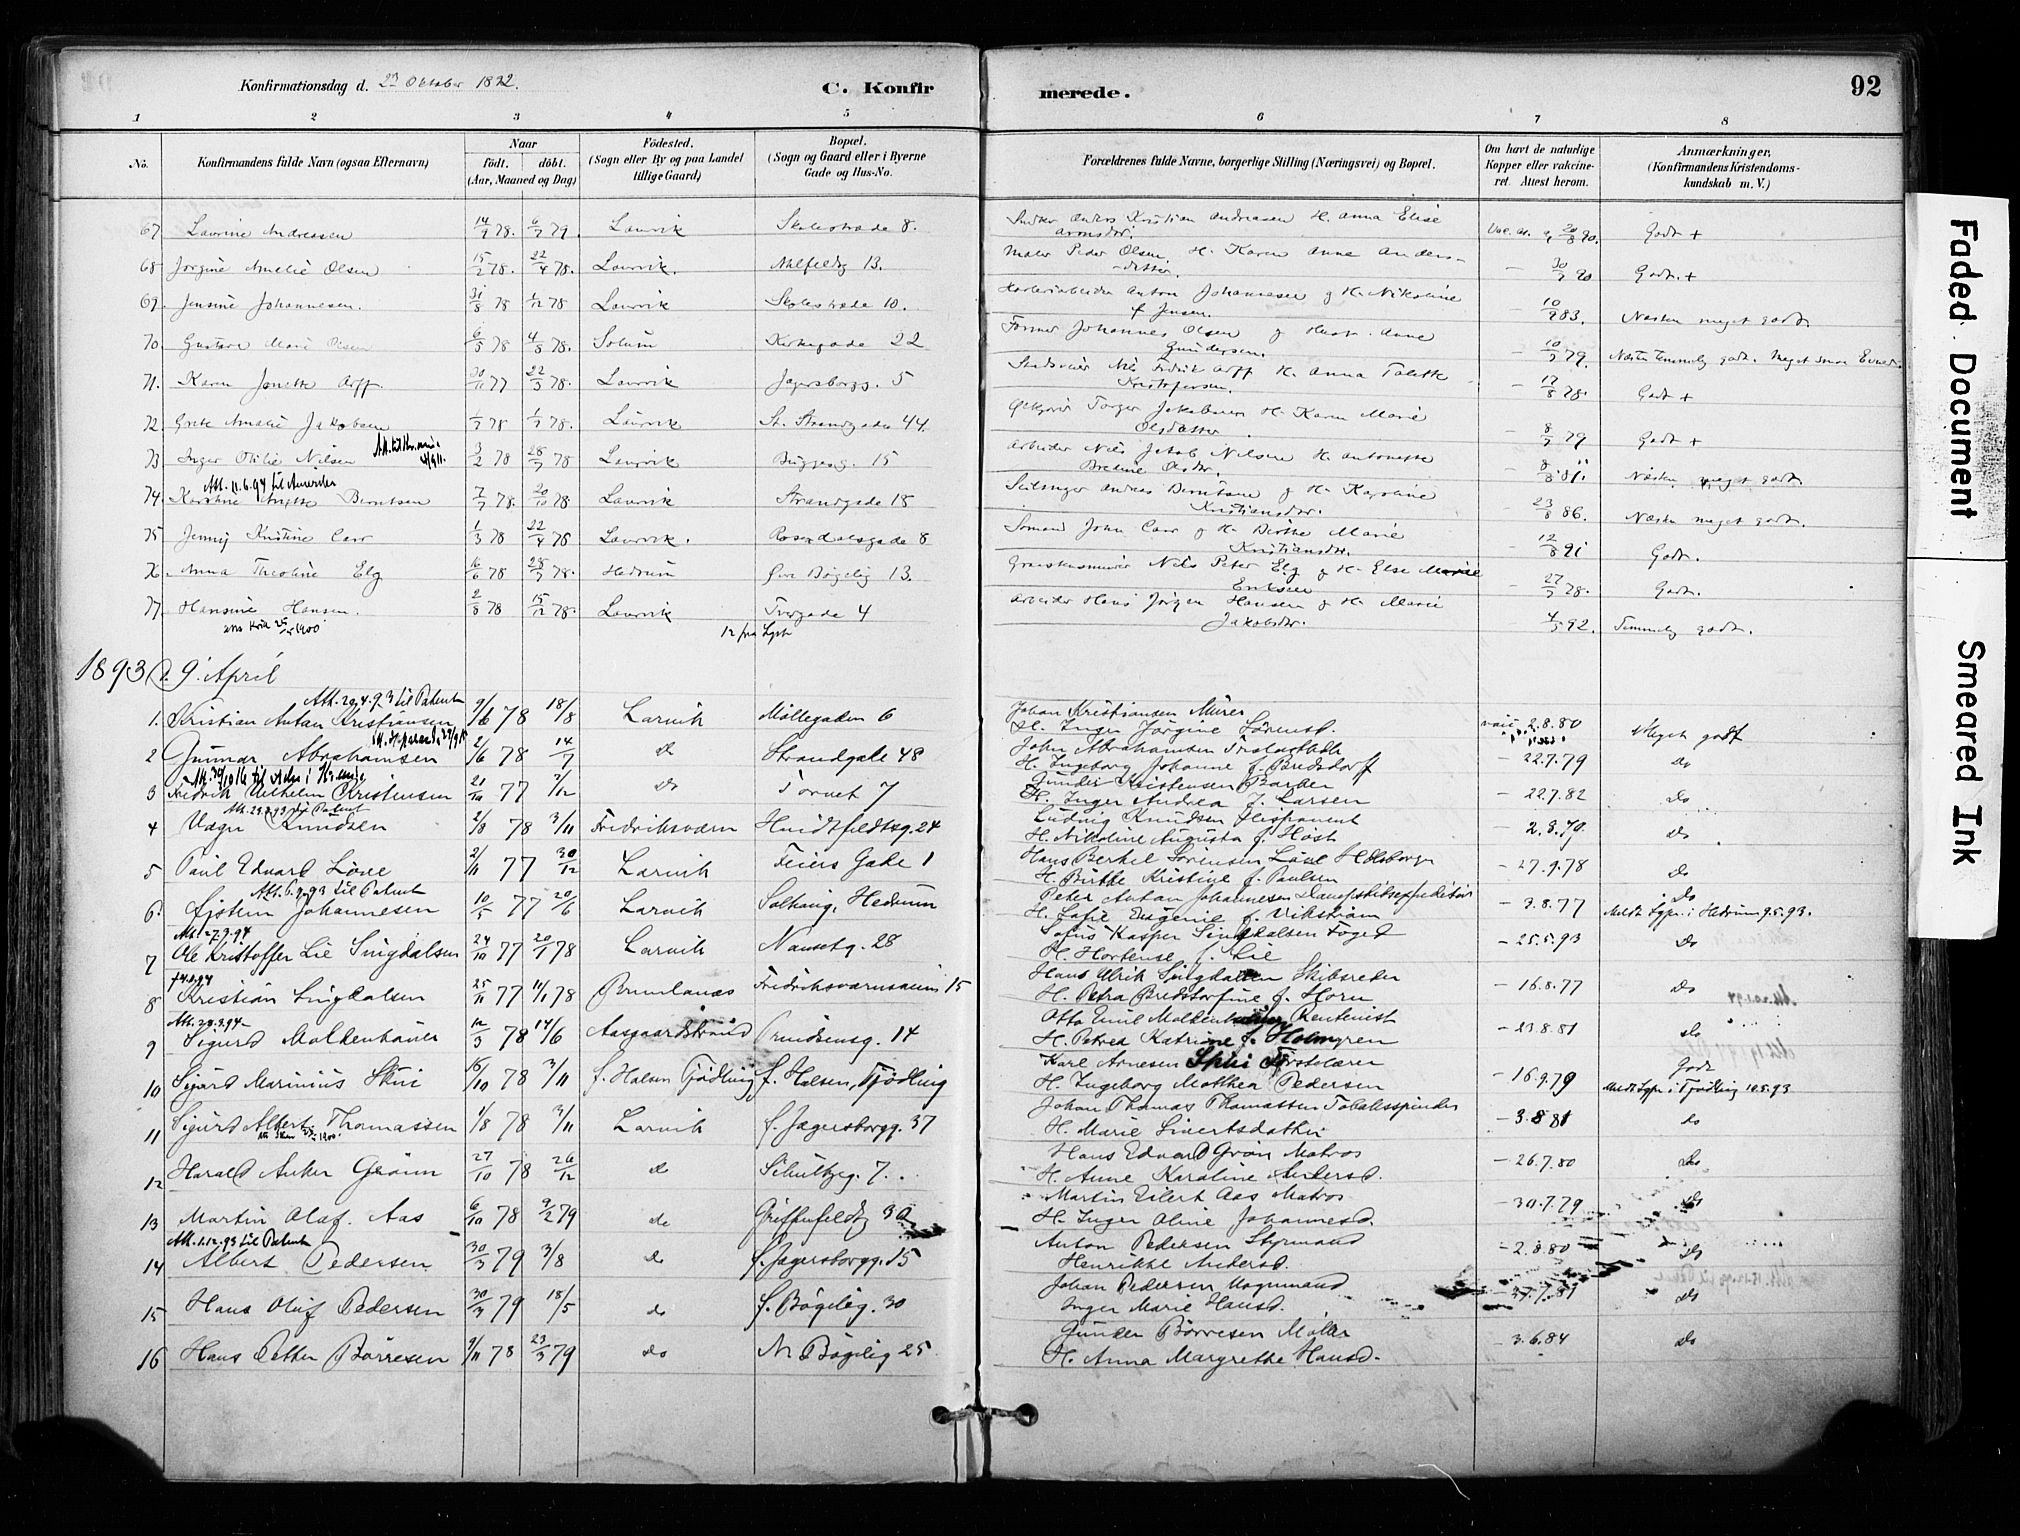 Konfirmationsdag d. 23 Oktober 1892.
C. Konfir
merede.
92
1 2 3 4 5 6 7 8
No.
Konfirmandens fulde Navn (ogsaa Efternavn)
Naar
födt. döbt.
(Aar, Maaned og Dag)
Födested.
(Sogn eller By og paa Landet
tillige Gaard)
Bopæl.
(Sogn og Gaard eller i Byerne
Gade og Hus-No.
Forældrenes fulde Navne, borgerlige Stilling (Næringsvei) og Bopæl.
Om havt de naturlige
Kopper eller vakcine-
ret. Attest herom.
Anmærkninger,
(Konfirmandens Kristendoms-
kundskab m. V.)
67. Laurine Andreasen 14/7 78. 6/7 79. Laurvik Skolestræde 8. Anders Kristian Andreasen H. Anna Elise 20/8 90. Godt +
68 Jörgine Amalie Olsen 15/2 78. 22/4 78. Laurvik. 13. Maler Peder Olsen. H. Karen Anne Anders-
datter. — 30/7 90 Godt. +
69. Jensine Johannesen. 31/8 78 1/12 78 Laurvik Skolestræde 10. Anton Johannesen & H. Nikoline
f Jensen. — 10/9 83. Næsten meget godt.
70. Gustava Marie Olsen 6/3 78 4/8 78. Solum Kirkegade 22 Former Johannes Olsen & Hustr. Anne
Gundersen. — 10/7 79. Næsten temmelig godt. Meget smaa Evner.
71. Karen Janette Arff 30/11 77 22/3 78. Laurvik Jagersborgg. 5 Nils Fredrik Arff H. Anna Talette
Kristofersen. — 17/8 78. Godt +
72. Grete Amalie Jakobsen 1/7 78. Laurvik St. Strandgade 44. Torger Jakobsen H. Karen Marie
Olsdatter. — 8/7 79 Godt +
73 Inger Otilie Nilsen 3/2 78 28/7 78 Laurvik Buggesg. 15 Arbeider Nils Jakob Nilsen H. Antonette
Bredine Olsdtr. — 8/8 81. Næsten meget godt
Att. 11.6.94 til Amerika
74. Berntsen 7/7 78. 20/10 78 Laurvik Strandgade 18 Anders Berntsen & H. Karoline
Kristiansdtr. — 23/8 86. Næsten meget godt.
75 Jenny Kristine Carr 1/3 78 22/4 78 Laurvik. Rosendalsgade 8 Sømand John Carr & H. Birthe Marie
Kristiansdtr. — 12/8 91 Godt.
76. Anna Theoline Elg 16/6 78 28/7 78. Hedrum Övre Bøgelig 13. Nils Peter Elg & H. Else Marie
Eriksen — 27/7 78. Godt.
77. Hansine Hansen. 2/8 78 15/12 78. Laurvik Tvergade 4 Arbeider Hans Jörgen Hansen & H. Marie
Jakobsdtr. 4/5 92. Temmelig godt.
12 fra Lyst
1893 d. 9. April
Att. 20.4.93 til Patent
1. Kristian Antan Kristiansen 9/6 78 18/8 Larvik Möllegaden 6 Johan Kristiansen Murer
H. Inger Jørgine Sörensd. vacc. 2.8.80 Meget godt
2 Gunnar Abrahamsen 2/6 78 14/7 do Strandgade 48 John Abrahamsen
H. Ingeborg Johanne f. Bredsdorff — 22.7.79 do
3 Fredrik Vilhelm Kristensen 21/10 77 2/12 do Torvet 7 Gunder Kristensen Barber
H. Inger Andrea f. Larsen — 22.7.82 do
4 Vagn Knudsen 2/8 78 3/11 Fredriksværn Hvidtfeldtsg. 24 Ludvig Knudsen
H. Nikoline Augusta f. Høst — 2.8.79. do
5 Paul Edvard Löve 2/11 77 30/12 Larvik Feiers Gade 1 Hans Bertel Sörensen Löve
H. Birthe Kristine f. Paulsen — 27.9.78 do
Att. 6.9.93 til Patent
6. Øjstein Johannesen 10/5 77 20/6 Larvik Solhaug, Hedrum Peter Antan Johannesen Dampskibsexpeditör
H. Sofie Eugenie f. Vikström — 3.8.77 do
Meldt Sgpr. i Hedrum 9.5.93.
Att. 27.9.94
7 Ole Kristoffer Lie Singdalsen 24/10 77 20/1 78 Larvik Nansetg. 28 Sofus Kasper Singdalsen Foged
H. Hortense f. Lie — 25.5.93 do
8 Kristian Singdalsen 25/11 77 11/1 78 Brunlanæs Fredriksværnsveien 15 Hans Ulrik Singdalsen Skibsreder
H. Petra Bredstorfine f. Horn — 16.8.77 do
9 Sigurd Moldenhauer 12/3 78 14/6 Aasgaardstrand Prindsensg. 14 Otto Emil Moldenhauer Rentenist
H. Petrea Katrine f. Holmgren — 23.8.81 do
10 Sigurd Marinius Skui 15/10 78 3/11 f. Halsen Tjödling f. Halsen, Tjödling Karl Arnesen Skui
H. Ingeborg Mathea Pedersen — 16.9.79 Godt
Meldt Sgpr. i Tjødling 10.5.93
11 Sigurd Albert Thomassen 1/8 78 3/11 Larvik f. Jagersborgg. 37 Johan Thomas Thomassen Tobaksspinder
H. Marie Sivertsdatter — 3.8.81 do
12 Harald Anker Grönn 27/10 78 26/12 do Schultzeg. 7. Hans Edvard Grøn Matros
H. Anne Karoline Andersd. — 26.7.80 do
13 Martin Olaf Aas 6/10 78 9/2 79 do Griffenfeldtg 30 Martin Eilert Aas Matros
H. Inger Oline Johannesd. — 30.7.79 do
Att. 1.12.93 til Patent
14 Albert Pedersen 30/3 79 3/8 do f. Jagersborgg. 15 Anton Pedersen Styrmand
Henrikke Andersd. — 2.8.80 do
15 Hans Oluf Pedersen 30/3 79 18/5 do f. Bögelig. 30 Johan Pedersen Vognmand
Inger Marie Hansd. — 31.7.81 do
16 Hans Petter Börresen 9/11 78 23/3 79 do N Bögelig 25 Gunder Börresen Möller
H. Anna Margrethe Hansd. — 3.6.84 do
Faded Document
Smeared Ink